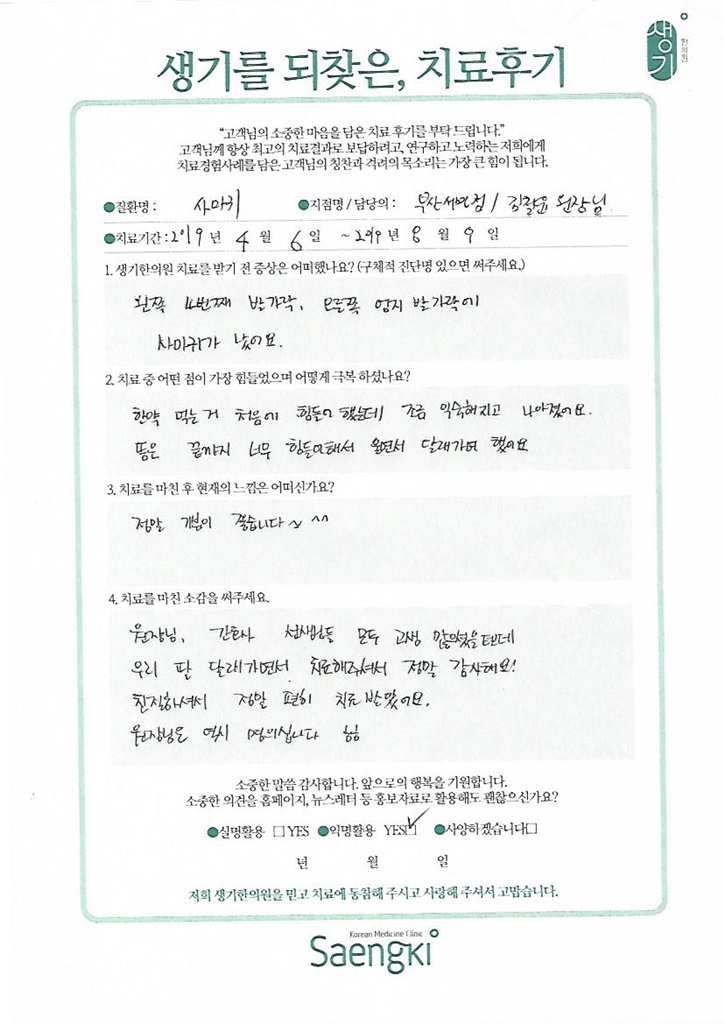 생기
한의원
생기를 되찾은, 치료후기
“고객님의 소중한 마음을 담은 치료 후기를 부탁 드립니다.”
고객님께 항상 최고의 치료결과로 보답하려고, 연구하고 노력하는 저희에게
치료경험사례를 담은 고객님의 칭찬과 격려의 목소리는 가장 큰 힘이 됩니다.
●질환명 : 사마귀 ●지점명 / 담당의 : 부산서면점 / 김철윤 원장님
●치료기간 : 2019 년 4 월 6 일 ~ 2019 년 8 월 9 일
1. 생기한의원 치료를 받기 전 증상은 어떠했나요? (구체적 진단명 있으면 써주세요.)
왼쪽 4번째 발가락, 오른쪽 엄지 발가락에
사마귀가 났어요.
2. 치료 중 어떤 점이 가장 힘들었으며 어떻게 극복 하셨나요?
한약 먹는거 처음에 힘들어 했는데 조금 익숙해지고 나아졌어요.
뜸은 끝까지 너무 힘들어해서 울면서 달래가며 했어요
3. 치료를 마친 후 현재의 느낌은 어떠신가요?
정말 기분이 좋습니다~ ^^
4. 치료를 마친 소감을 써주세요.
원장님, 간호사 선생님들 모두 고생 많으셨을텐데
우리 딸 달래가면서 치료해주셔서 정말 감사해요!
친절하셔서 정말 편히 치료 받았어요.
원장님은 역시 명의십니다 ㅎㅎ
소중한 말씀 감사합니다. 앞으로의 행복을 기원합니다.
소중한 의견을 홈페이지, 뉴스레터 등 홍보자료로 활용해도 괜찮으신가요?
●실명활용 □ YES ●익명활용 YES☑ ●사양하겠습니다□
년 월 일
저희 생기한의원을 믿고 치료에 동참해 주시고 사랑해 주셔서 고맙습니다.
Korean Medicine Clinic
Saengki